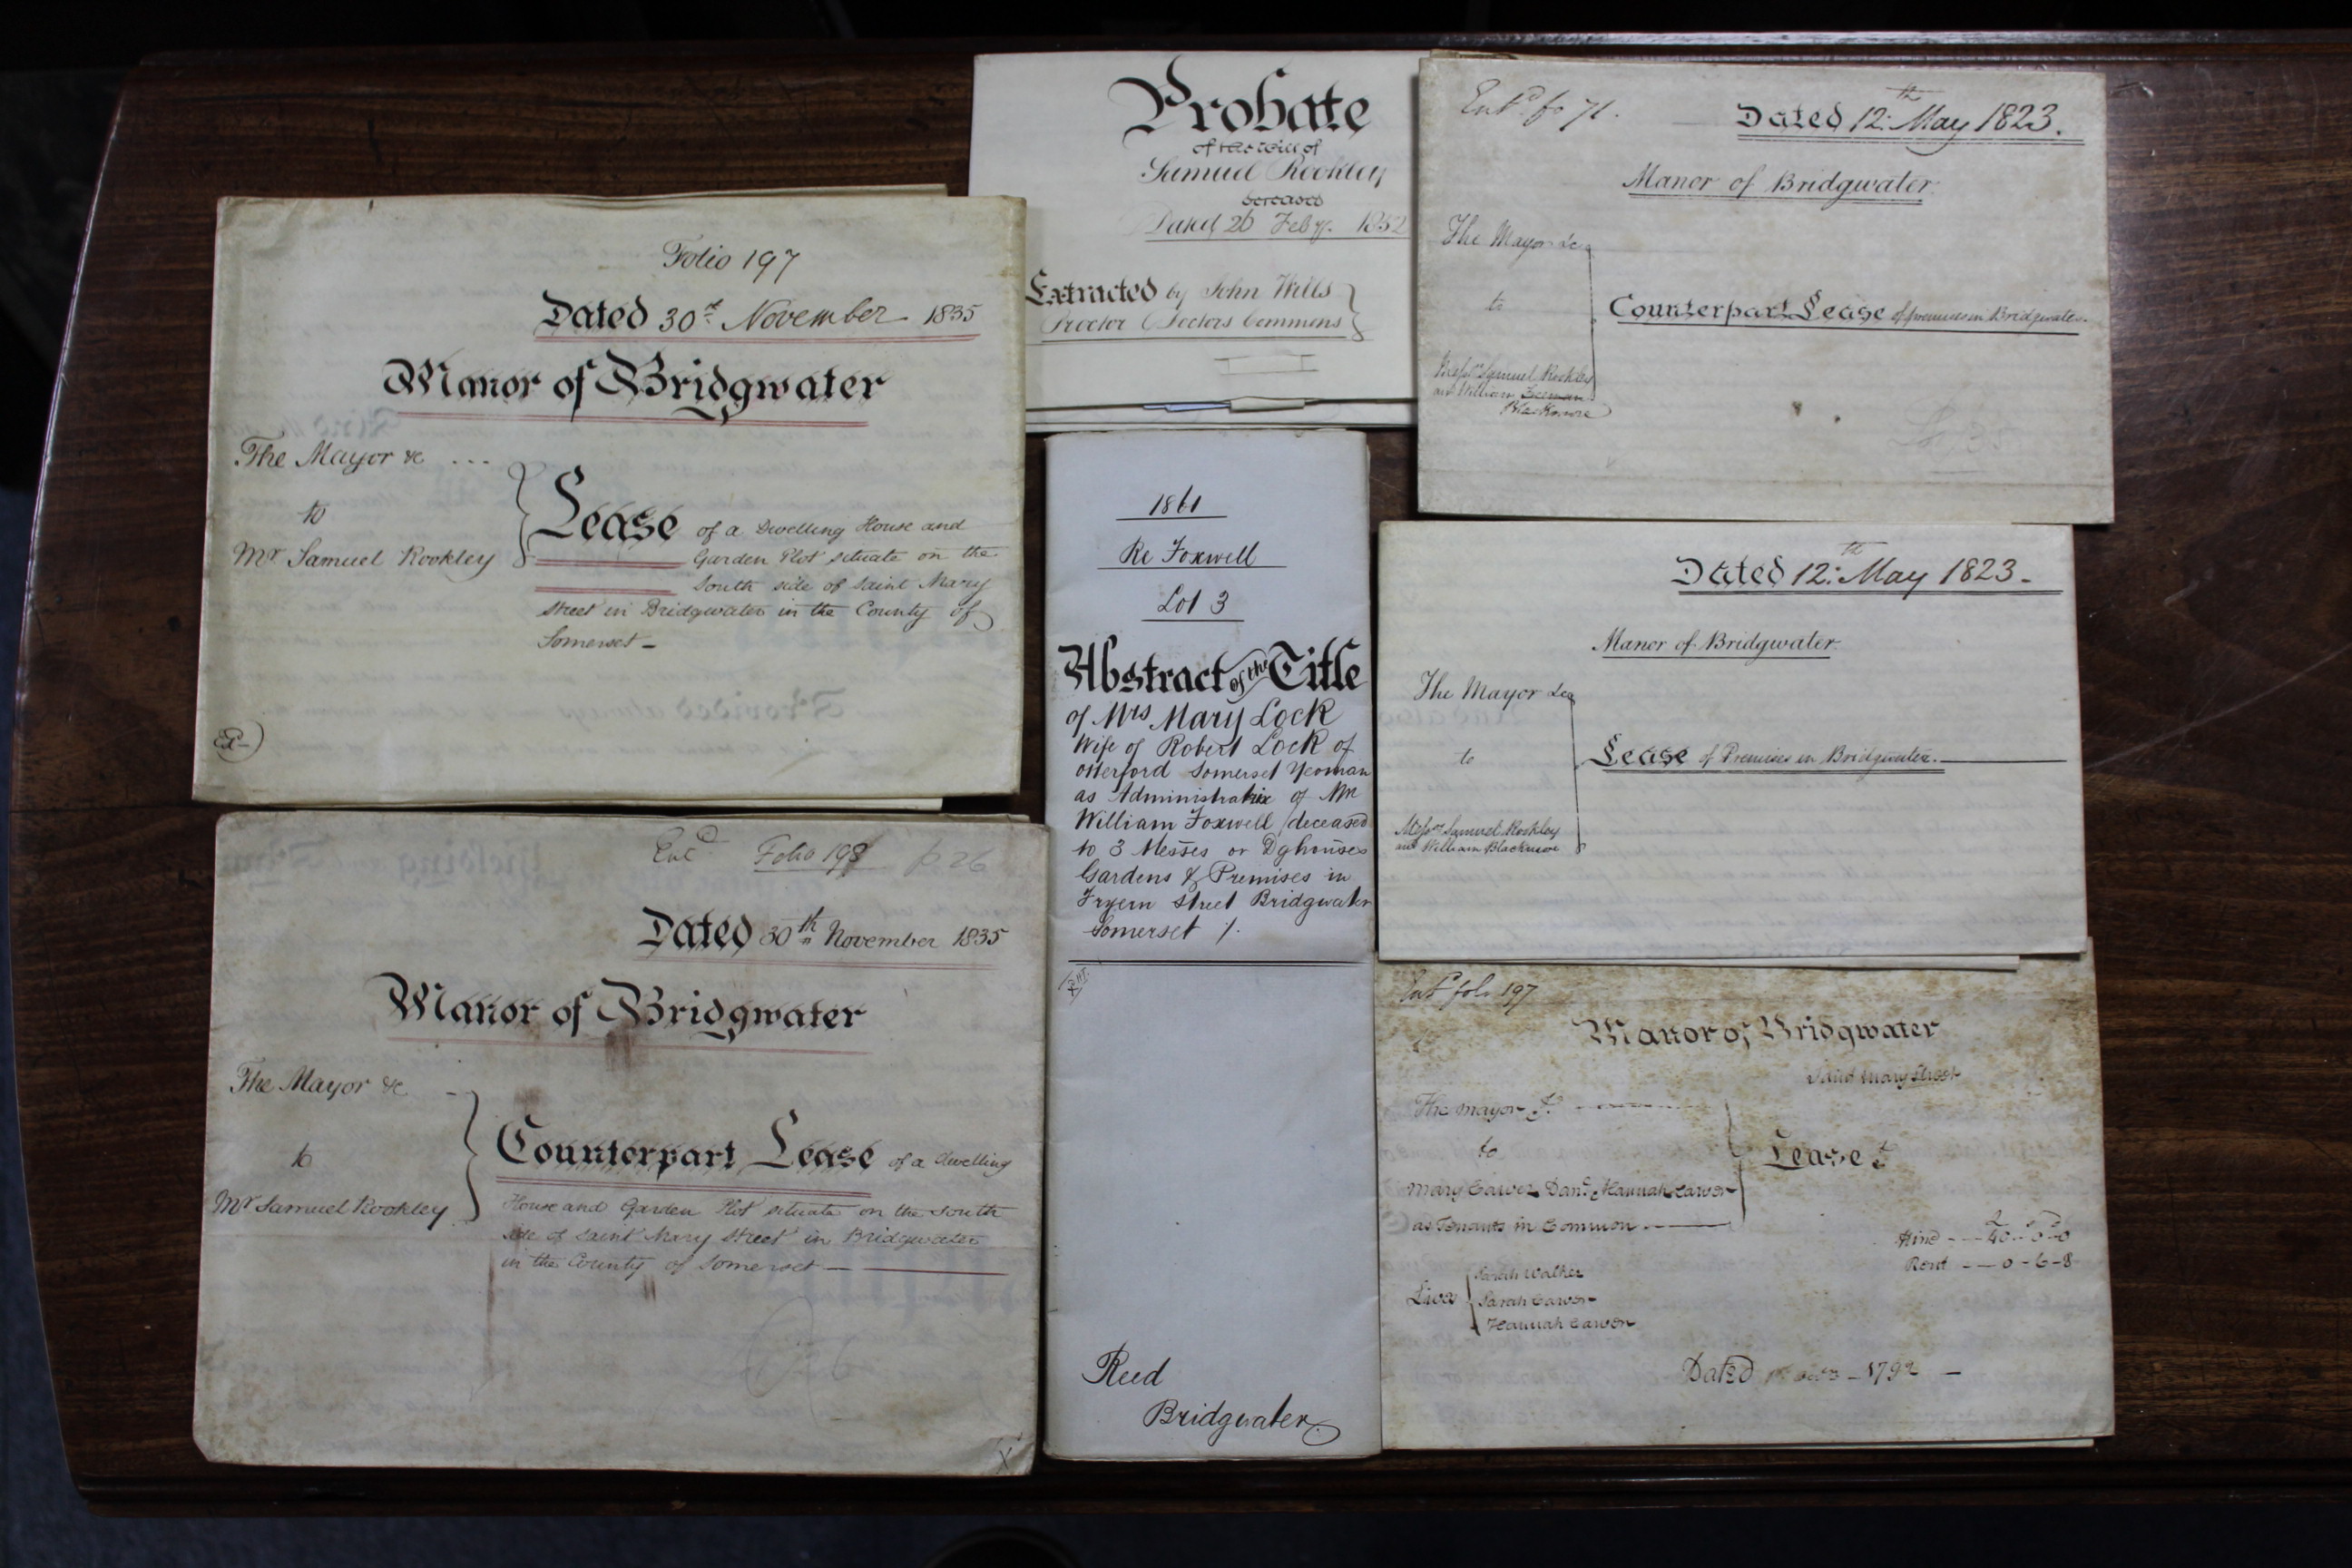 Folio 197
Dated 30th November 1835
Manor of Bridgwater
The Mayor &c
to
Mr Samuel Rookley
Lease of a Dwelling House and
Garden Plot situate on the
South side of Saint Mary
Street in Bridgwater in the County of
Somerset
Entd Folio 198 p 26
Dated 30th November 1835
Manor of Bridgwater
The Mayor &c
to
Mr Samuel Rookley
Counterpart Lease of a Dwelling
House and Garden Plot situate on the South
side of Saint Mary Street in Bridgwater
in the County of Somerset
Probate
of the will of
Samuel Rookley
deceased
Dated 26 Feby. 1852
Extracted by John Wills
Proctor Doctors Commons
1861
Re Foxwell
Lot 3
Abstract of the Title
of Mrs Mary Lock
Wife of Robert Lock of
Otterford Somerset Yeoman
as Administratrix of Mr
William Foxwell deceased
to 3 Messes or Dghouses
Gardens & Premises in
Fryern Street Bridgwater
Somerset
Reed
Bridgwater
Entd fo 71.
Dated 12th May 1823.
Manor of Bridgwater
The Mayor &c
to
Messrs Samuel Rookley
and William
Blackmore
Counterpart Lease of premises in Bridgwater
Dated 12th May 1823
Manor of Bridgwater
The Mayor &c
to
Messrs Samuel Rookley
and William Blackmore
Lease of Premises in Bridgwater
Entd folo 197
Manor of Bridgwater
Saint Mary Street
The Mayor
to
Mary Carver and Hannah Carver
as Tenants in Common
Lease
Fine 40-0-0
Rent 0-6-8
Lives
Sarah Walker
Sarah Carver
Hannah Carver
Dated 1792